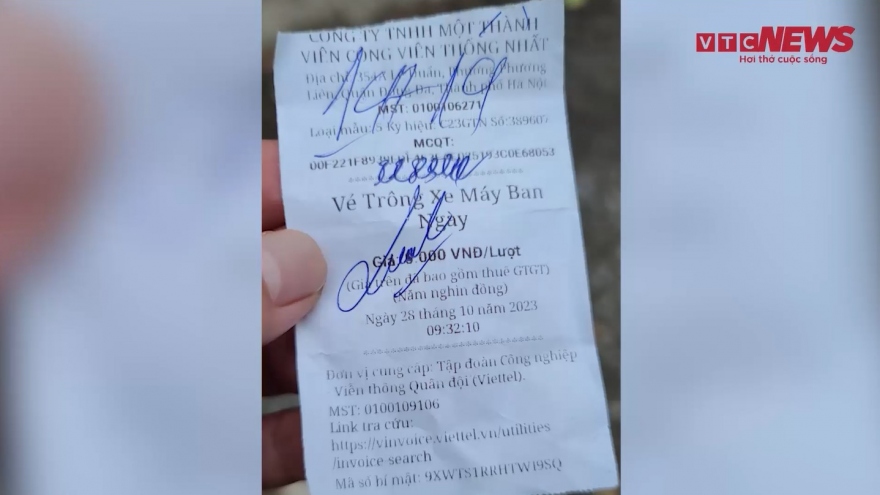 VTC NEWS
Hơi thở cuộc sống
CÔNG TY TNHH MỘT THÀNH
VIÊN CÔNG VIÊN THỐNG NHẤT
Địa chỉ: 354 Quần, Phường Phương
Liên, Quận Đống Đa, Thành phố Hà Nội
MST: 0100106271
Loại mẫu: 5 Ký hiệu: C23GTN Số:389607
MCQT:
Vé Trông Xe Máy Ban
Ngày
Giá: 5.000 VNĐ/Lượt
(Giá trên đã bao gồm thuế GTGT)
(Năm nghìn đồng)
Ngày 28 tháng 10 năm 2023
09:32:10
Đơn vị cung cấp: Tập đoàn Công nghiệp
Viễn thông Quân đội (Viettel).
MST: 0100109106
Link tra cứu:
https://vinvoice.viettel.vn/utilities
/invoice-search
Mã số bí mật: 9XWTS1RRHTWI9SQ